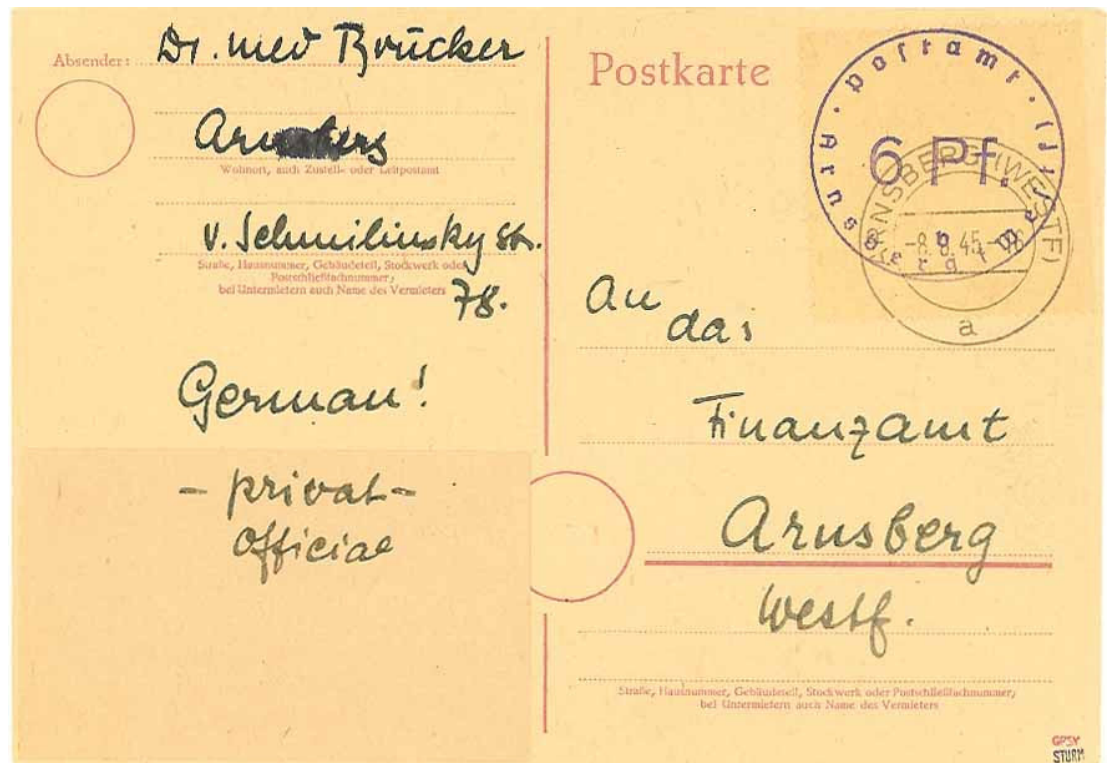 Absender: Dr. med Brücker
Wohnort, auch Zustell- oder Leitpostamt
v. Schmilinsky str.
Straße, Hausnummer, Gebäudeteil, Stockwerk oder
Postschließfachnummer;
bei Untermietern auch Name des Vermieters
78.
German!
- privat -
official
Postkarte
postamt
Arnsberg
6 Pf.
ARNSBERG (WESTF)
-8.8.45.-18
a
An
das
Finanzamt
Arnsberg
Westf.
Straße, Hausnummer, Gebäudeteil, Stockwerk oder Postschließfachnummer;
bei Untermietern auch Name des Vermieters
GPSY
STURM